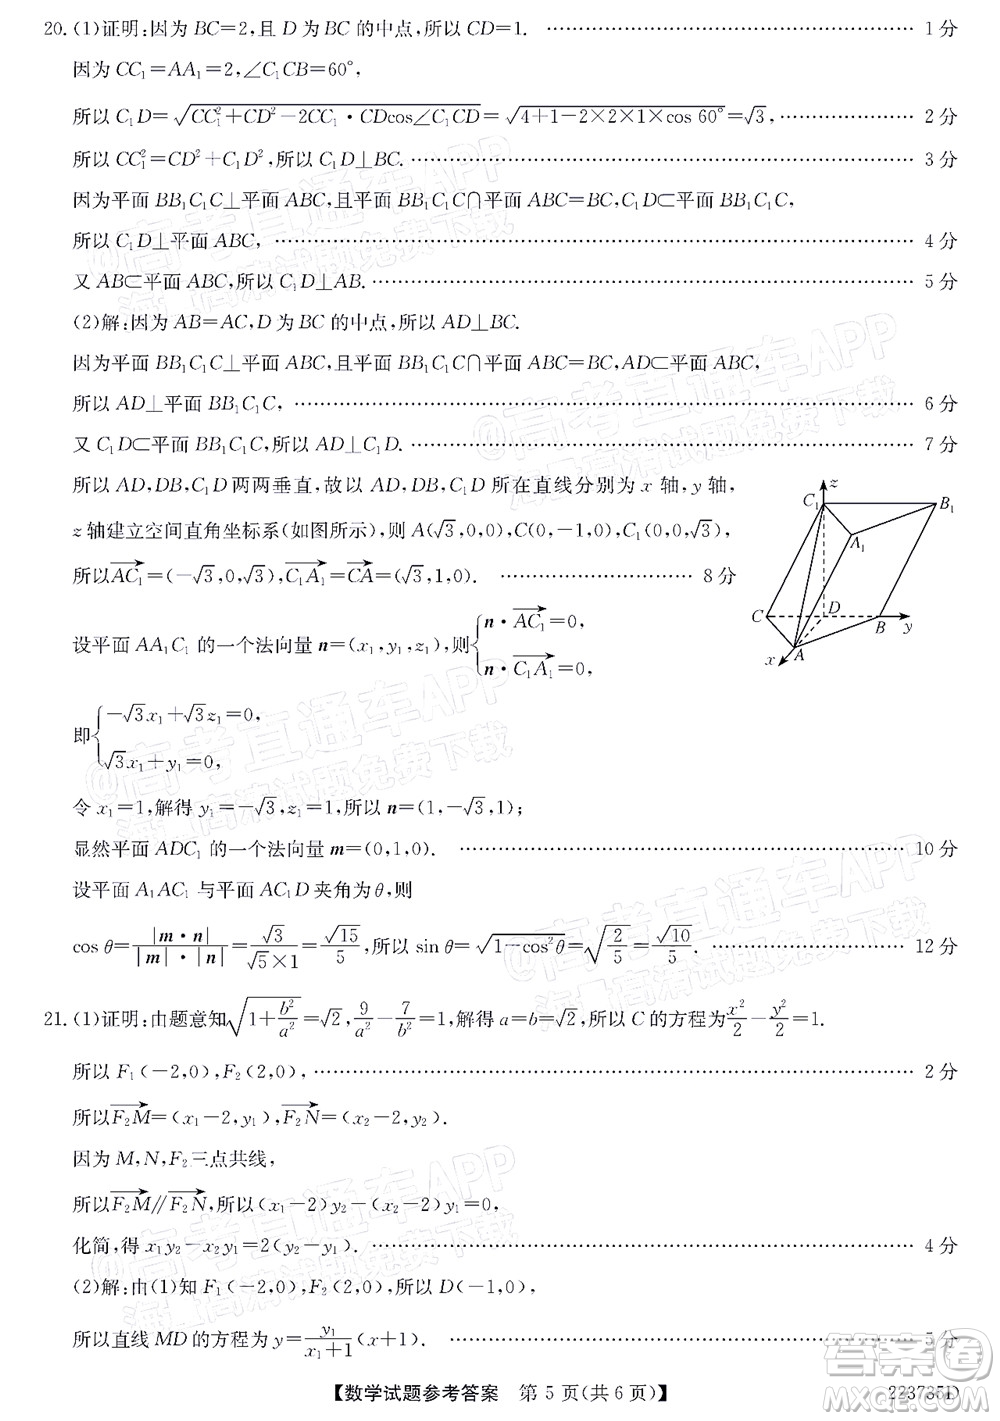 20. (1)证明:因为 BC=2,且 D 为 BC 的中点,所以 CD=1. ………… 1 分
因为 CC₁=AA₁=2,∠C₁CB=60°,
所以 C₁D=√(CC₁²+CD²-2CC₁·CDcos∠C₁CD)=√(4+1-2×2×1×cos 60°)=√3, ………… 2 分
所以 CC₁²=CD²+C₁D²,所以 C₁D⊥BC. ………… 3 分
因为平面 BB₁C₁C⊥平面 ABC,且平面 BB₁C₁C∩平面 ABC=BC,C₁D⊂平面 BB₁C₁C,
所以 C₁D⊥平面 ABC, ………… 4 分
又 AB⊂平面 ABC,所以 C₁D⊥AB. ………… 5 分
(2)解:因为 AB=AC,D 为 BC 的中点,所以 AD⊥BC.
因为平面 BB₁C₁C⊥平面 ABC,且平面 BB₁C₁C∩平面 ABC=BC,AD⊂平面 ABC,
所以 AD⊥平面 BB₁C₁C, ………… 6 分
又 C₁D⊂平面 BB₁C₁C,所以 AD⊥C₁D. ………… 7 分
所以 AD,DB,C₁D 两两垂直,故以 AD,DB,C₁D 所在直线分别为 x 轴,y 轴,
z 轴建立空间直角坐标系(如图所示),则 A(√3,0,0),C(0,-1,0),C₁(0,0,√3),
所以AC₁=(-√3,0,√3),C₁A₁=CA=(√3,1,0). ………… 8 分
设平面 AA₁C₁ 的一个法向量 n=(x₁,y₁,z₁),则{n·AC₁=0,
n·C₁A₁=0,
即{-√3x₁+√3z₁=0,
√3x₁+y₁=0,
令 x₁=1,解得 y₁=-√3,z₁=1,所以 n=(1,-√3,1);
显然平面 ADC₁ 的一个法向量 m=(0,1,0). ………… 10 分
设平面 A₁AC₁ 与平面 AC₁D 夹角为 θ,则
cos θ=|m·n|/(|m|·|n|)=√3/(√5×1)=√15/5,所以 sin θ=√(1-cos²θ)=√(2/5)=√10/5. ………… 12 分
z
C₁
B₁
A₁
C
D
B
y
x
A
21. (1)证明:由题意知√(1+b²/a²)=√2,9/a²-7/b²=1,解得 a=b=√2,所以 C 的方程为x²/2-y²/2=1.
所以 F₁(-2,0),F₂(2,0), ………… 2 分
所以F₂M=(x₁-2,y₁),F₂N=(x₂-2,y₂).
因为 M,N,F₂三点共线,
所以F₂M∥F₂N,所以(x₁-2)y₂-(x₂-2)y₁=0,
化简,得 x₁y₂-x₂y₁=2(y₂-y₁). ………… 4 分
(2)解:由(1)知 F₁(-2,0),F₂(2,0),所以 D(-1,0),
所以直线 MD 的方程为 y=y₁/(x₁+1)(x+1). ………… 5 分
【数学试题参考答案 第 5 页(共 6 页)】
223735D
@高考直通车APP
海量高清试题免费下载
@高考直通车APP
海量高清试题免费下载
@高考直通车APP
海量高清试题免费下载
@高考直通车APP
海量高清试题免费下载
@高考直通车APP
海量高清试题免费下载
答案圈
MXQE.COM